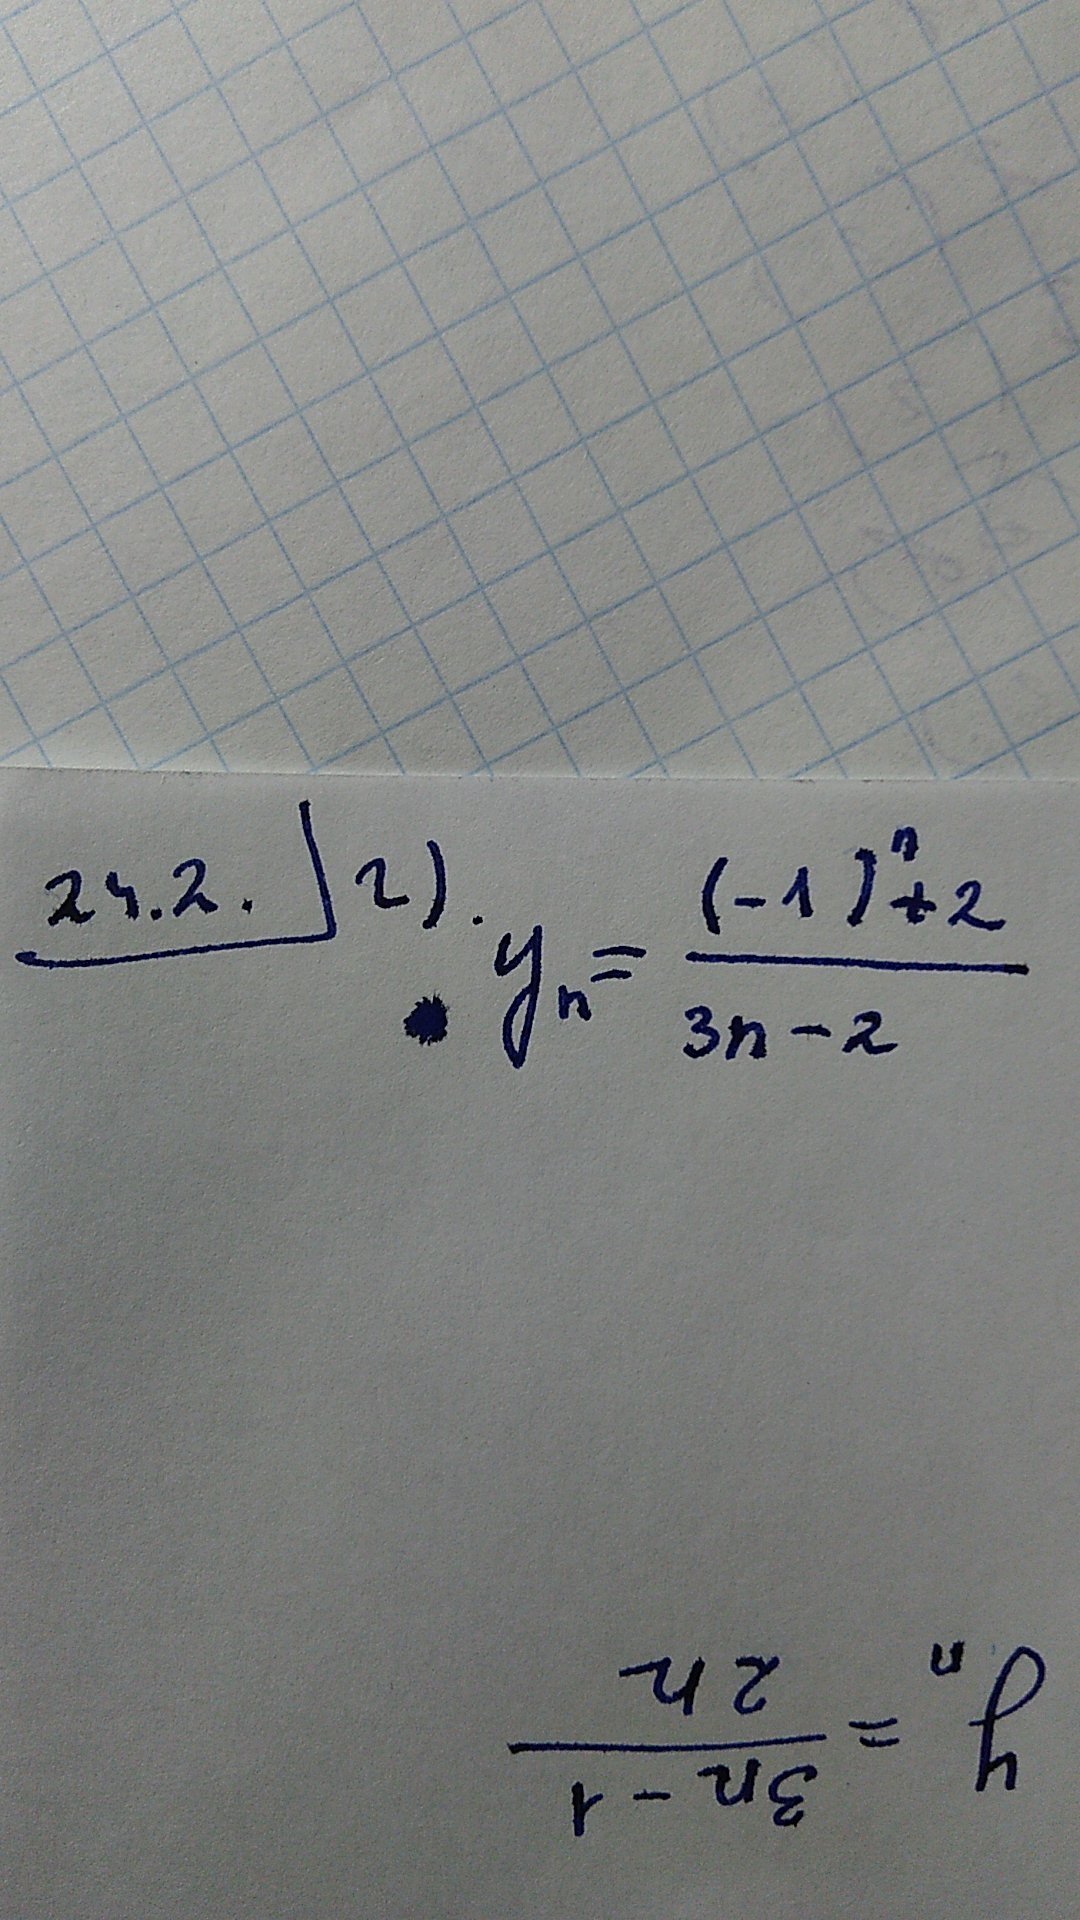 24.2. 2). yₙ = ((-1)ⁿ+2)/(3n-2)
yₙ = (3n-1)/(2n)